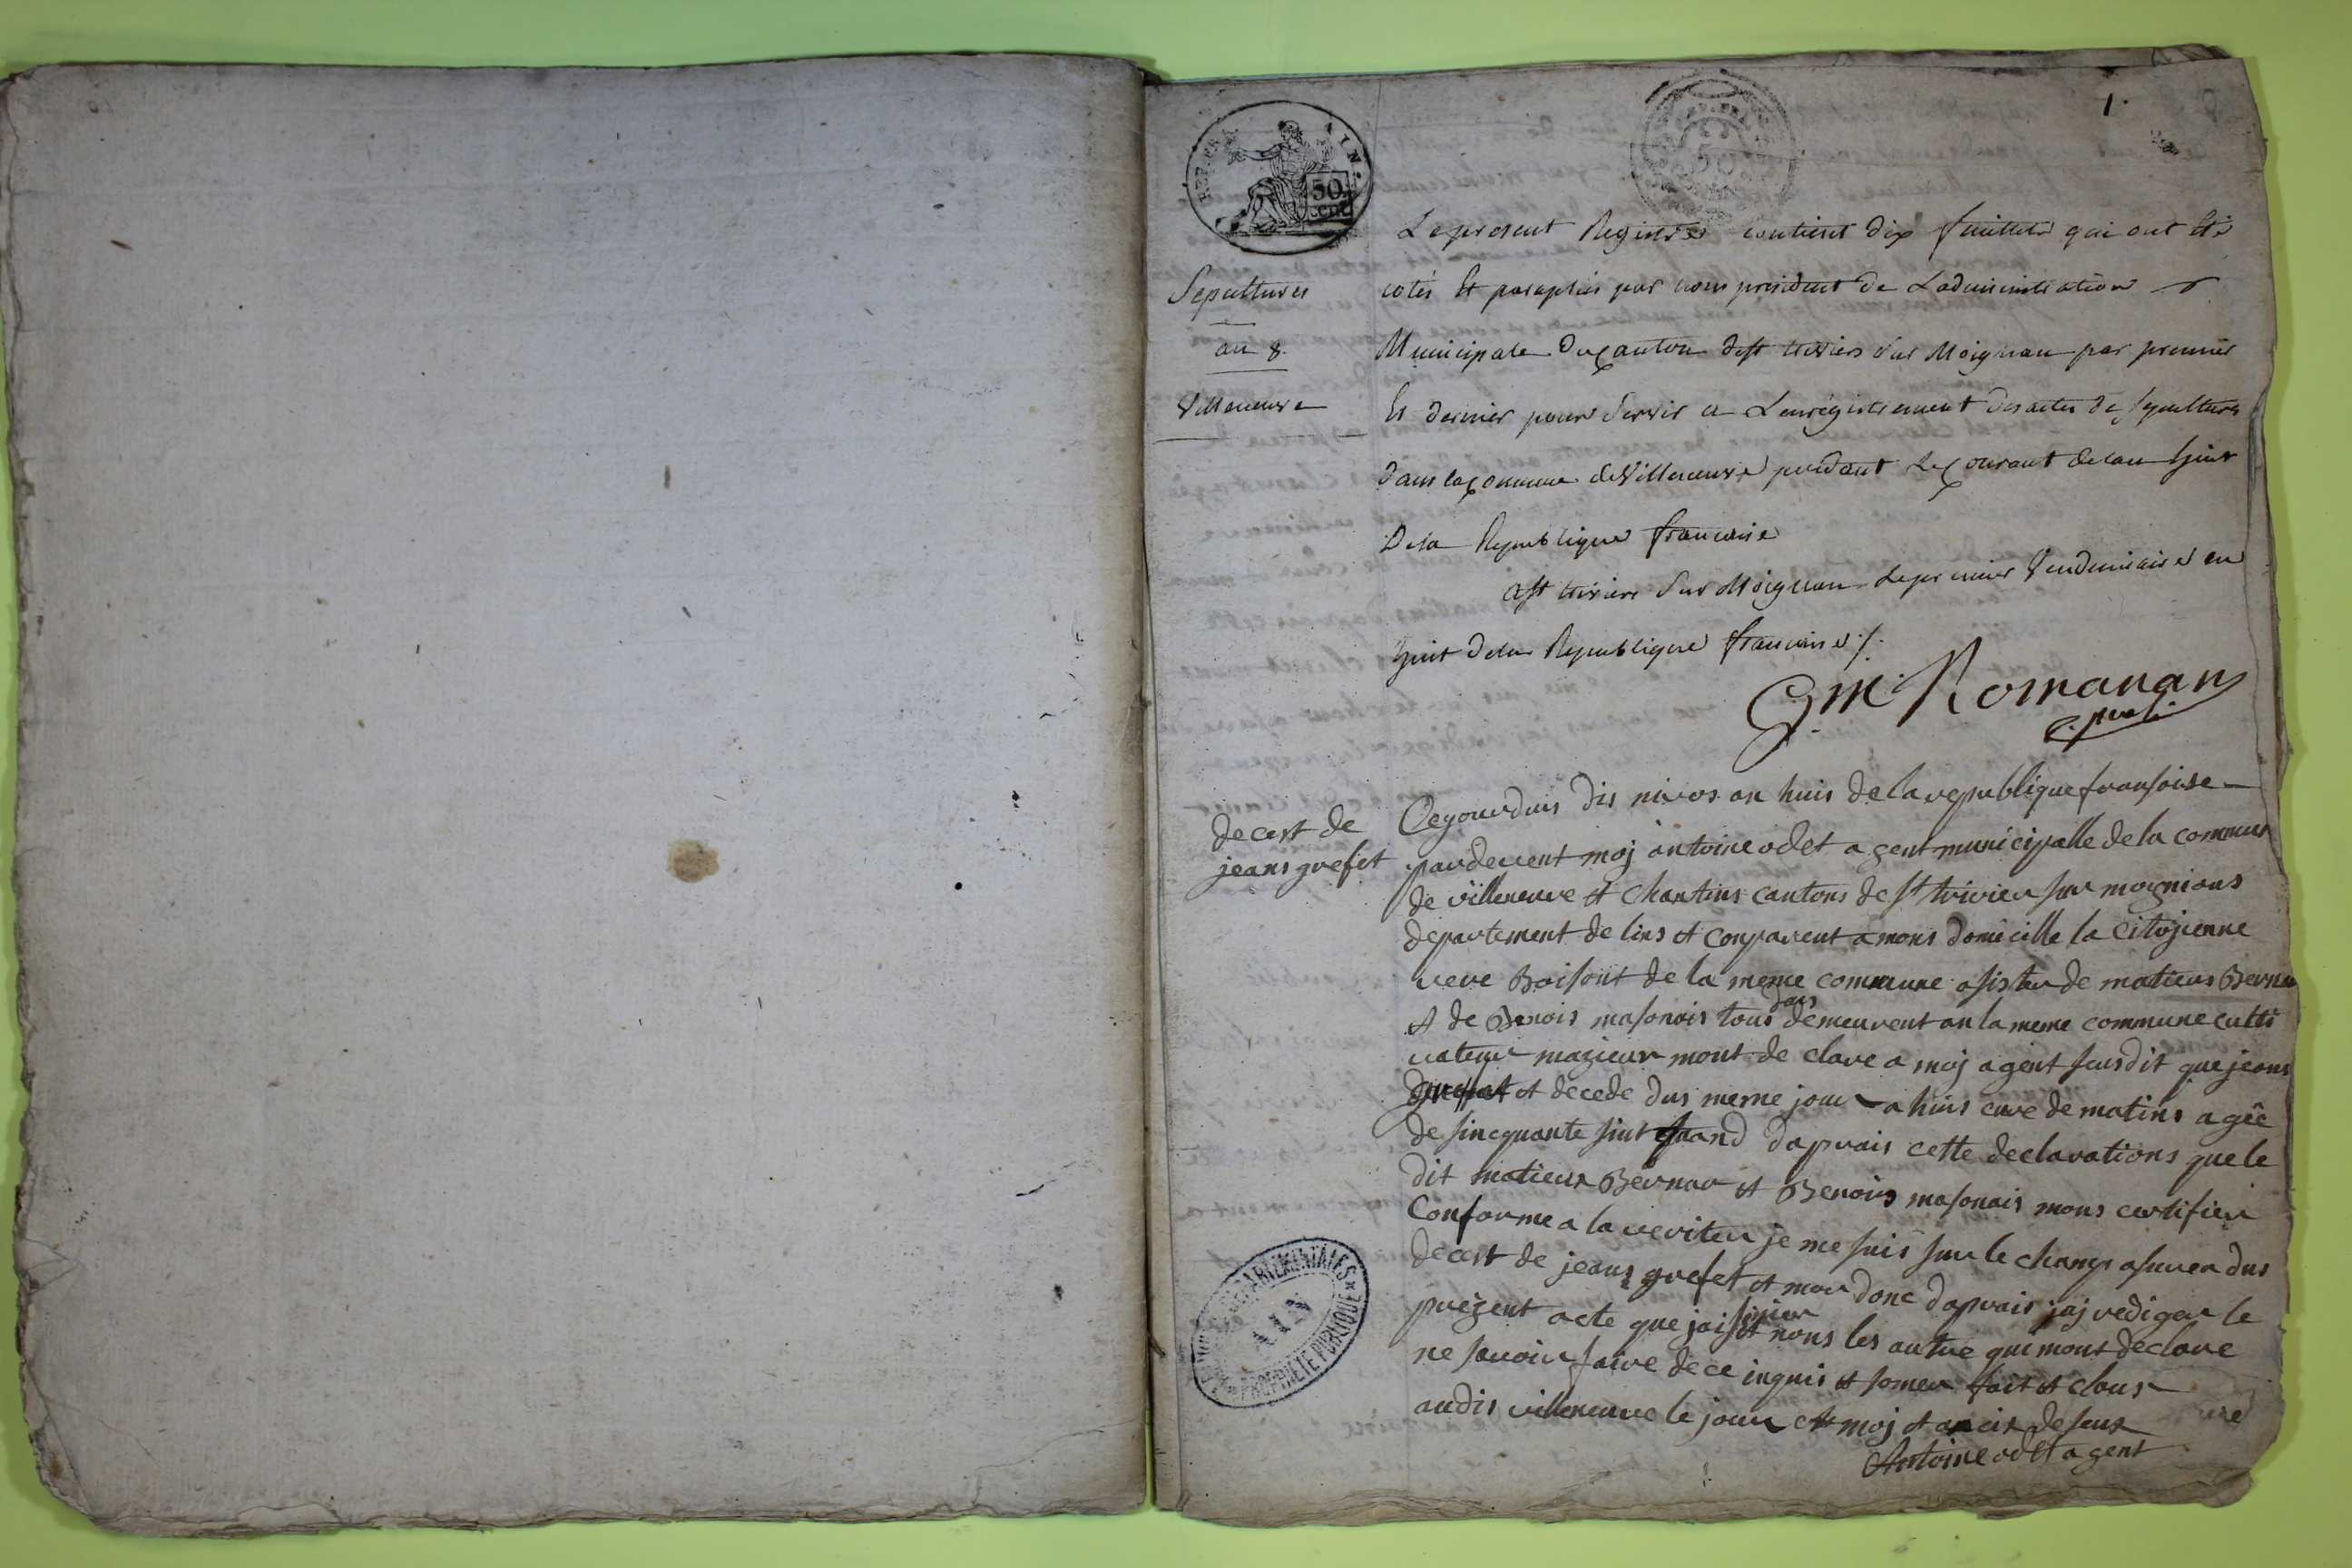 1.
REP. FRA
AIN.
50
cent
Sepultures
an 8.
Villeneuve
Le present Registre contient dix feuillets qui ont Eté
cotés Et paraphés par nous president de Ladministration
Municipale du Canton de st trivier sur Moignan par premier
Et dernier pour Servir a Lenregistrement des actes de sepultures
dans la Commune de Villeneuve pendant Le Courant de lan huit
De la Republique francaise
a st trivier sur Moignan Le premier Vendemiaire an
huit de la Republique francaise ./.
Romanan
decest de
jeans grefet
Cegourduis dis nivos an huis de la republique fransoise
pardevent moj antoine odet agent municipalle de la commun
de villeneuve et Chantins cantons de st trivier sur mognions
departement de lins et conparent a mons domicille la citojenne
veve Boisont de la meme commune asister de matieus Bernar
et de Benois masonois tous dous demeurent an la meme commune culti
vateur mazieur mont de clare a moj agent susdit que jeans
et decede dus meme jour a huis eure de matins agée
de sincquante sint d'aprais cette declarations que le
dit matieus Bernar et Benois masonais mons certifier
Conforme a la veriter je me suis sur le champ asurer dus
decest de jeans grefet et mor donc daprais jaj rediger le
prezent acte que jai sinier et nons les autre qui mont declare
ne savoir faire de ce inquis et somer fait et clous
audis villeneuve le jour et moj et an cis desus
Antoine odet agent
DEPARTEMENTALES
AIN
PROPRIETE PUBLIQUE